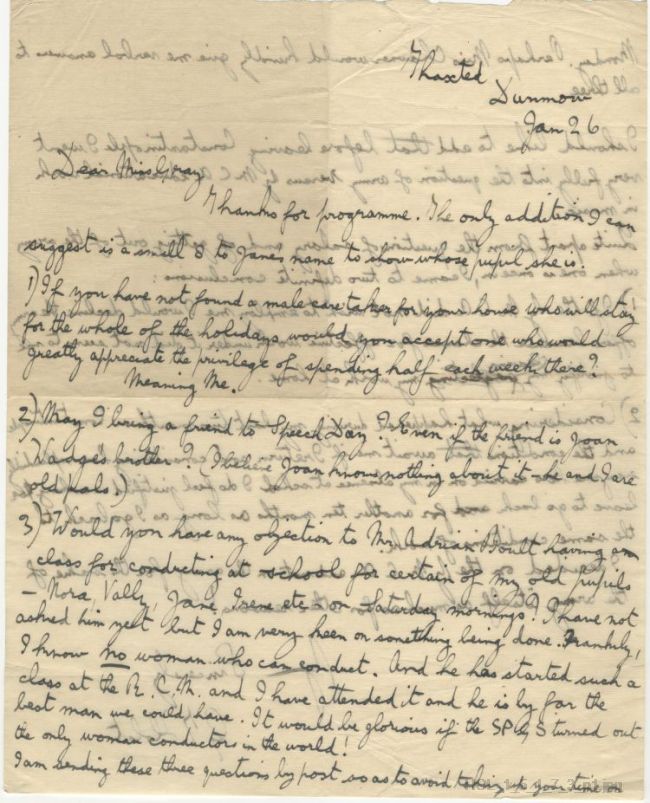 Thaxted
Dunmow
Jan 26
Dear Miss Gray
Thanks for programme. The only addition I can
suggest is a small S to Janes name to show whose pupil she is!
1) If you have not found a male care taker for your house who will stay
for the whole of the holidays would you accept one who would
greatly appreciate the privilege of spending half each week there?
Meaning Me.
2) May I bring a friend to Speech Day? Even if the friend is Joan
brother? (I believe Joan knows nothing about it – he and I are
old pals.)
3) Would you have any objection to Mr Adrian Boult having a
class for conducting at school for certain of my old pupils
– Nora, Vally, Jane, Irene etc – on Saturday mornings? I have not
asked him yet but I am very keen on something being done. Frankly,
I know no woman who can conduct. And he has started such a
class at the R.C.M. and I have attended it and he is by far the
best man we could have. It would be glorious if the SPGS turned out
the only woman conductors in the world!
I am sending these three questions by post so as to avoid taking up your time on